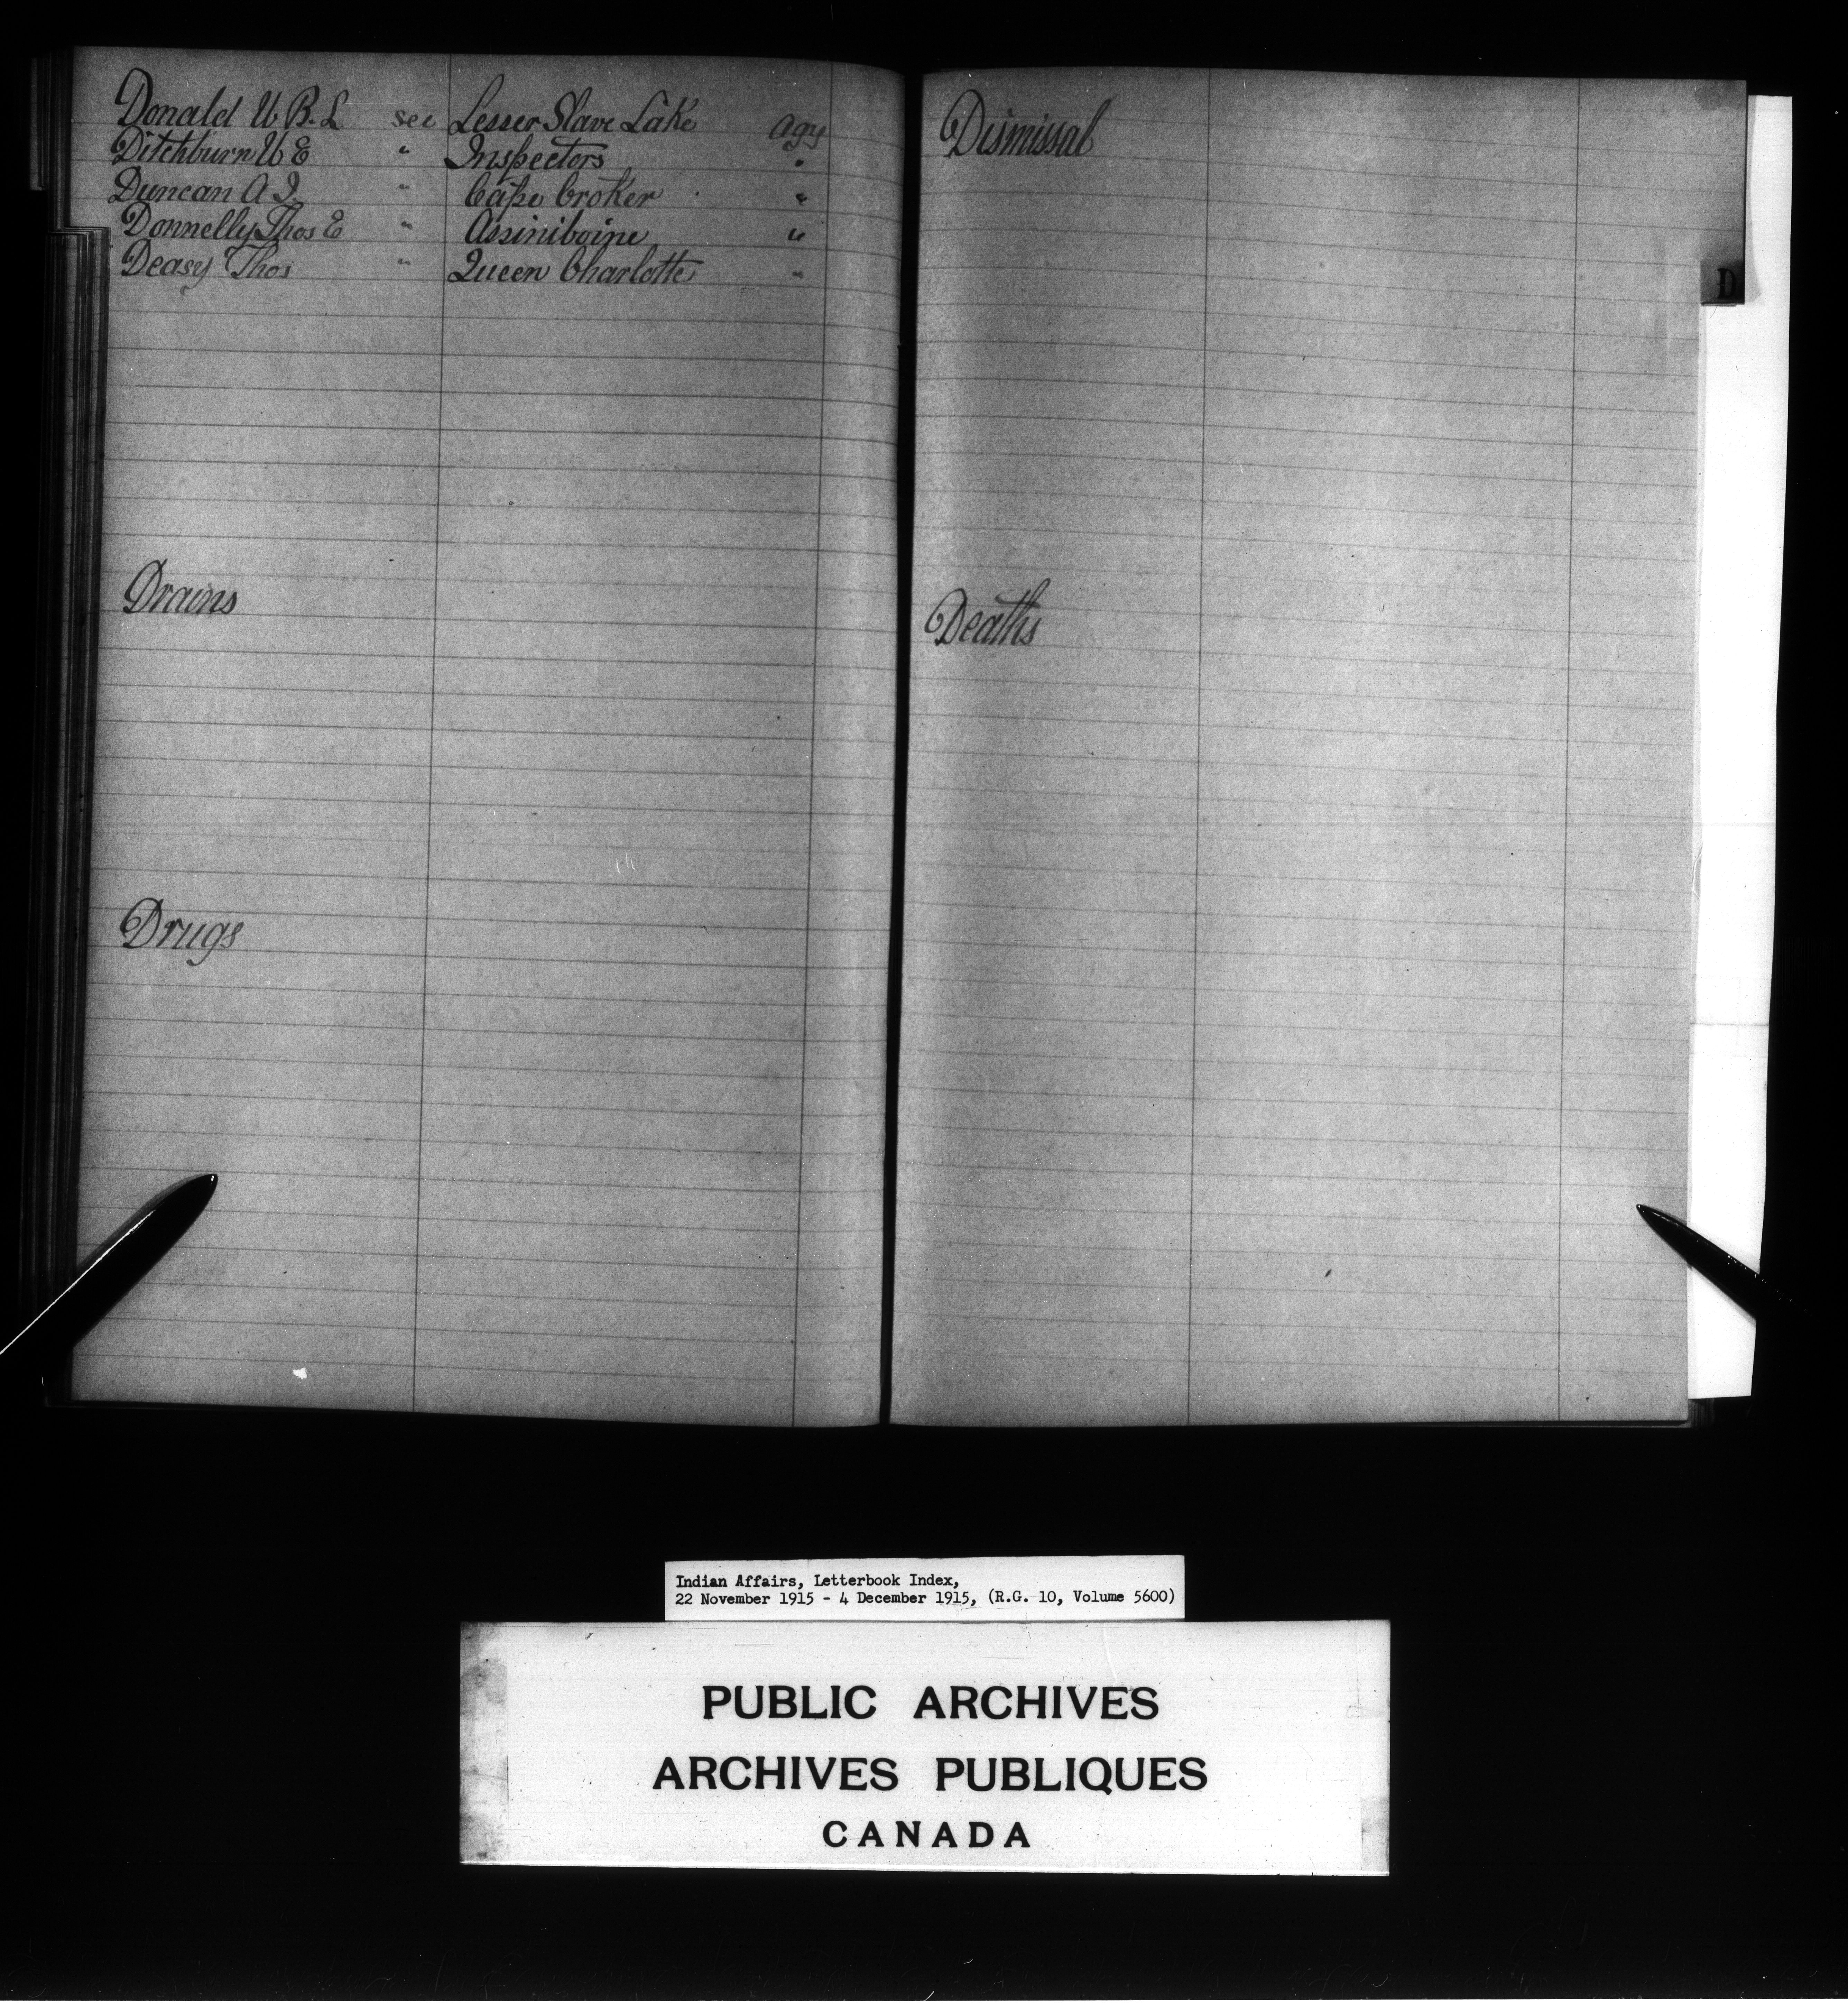 Donald W B. L see Lesser Slave Lake agy
Ditchburn W E " Inspectors "
Duncan A J. " Cape Croker "
Donnelly Thos E " Assiniboine "
Deasy Thos " Queen Charlotte "
Drains
Drugs
Dismissal
D
Deaths
Indian Affairs, Letterbook Index,
22 November 1915 - 4 December 1915, (R.G. 10, Volume 5600)
PUBLIC ARCHIVES
ARCHIVES PUBLIQUES
CANADA